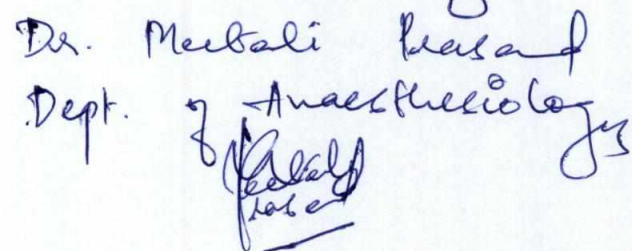 Dr. Meetali Prasad
Dept. of Anaesthesiology